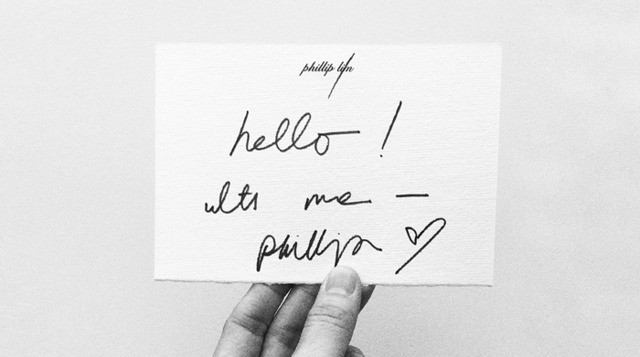 phillip lim
hello!
its me —
phillip ♡